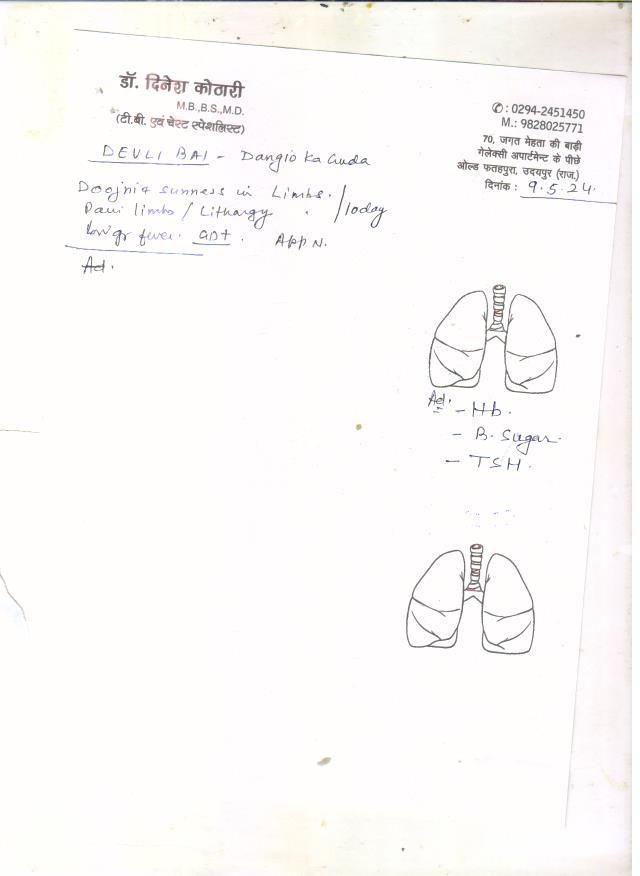 डॉ. दिनेश कोठारी
M.B.,B.S.,M.D.
(टी.बी. एवं चेस्ट स्पेशलिस्ट)
✆: 0294-2451450
M.: 9828025771
70, जगत मेहता की बाड़ी
गेलेक्सी अपार्टमेन्ट के पीछे
ओल्ड फतहपुरा, उदयपुर (राज.)
दिनांक : 9.5.24.
DEVLI BAI - Dangio Ka Guda
in Limbs.
limbs / Lithargy . / 10day
fever. App N.
Ad.
Ad. - Hb.
- B. Sugar.
- TSH.